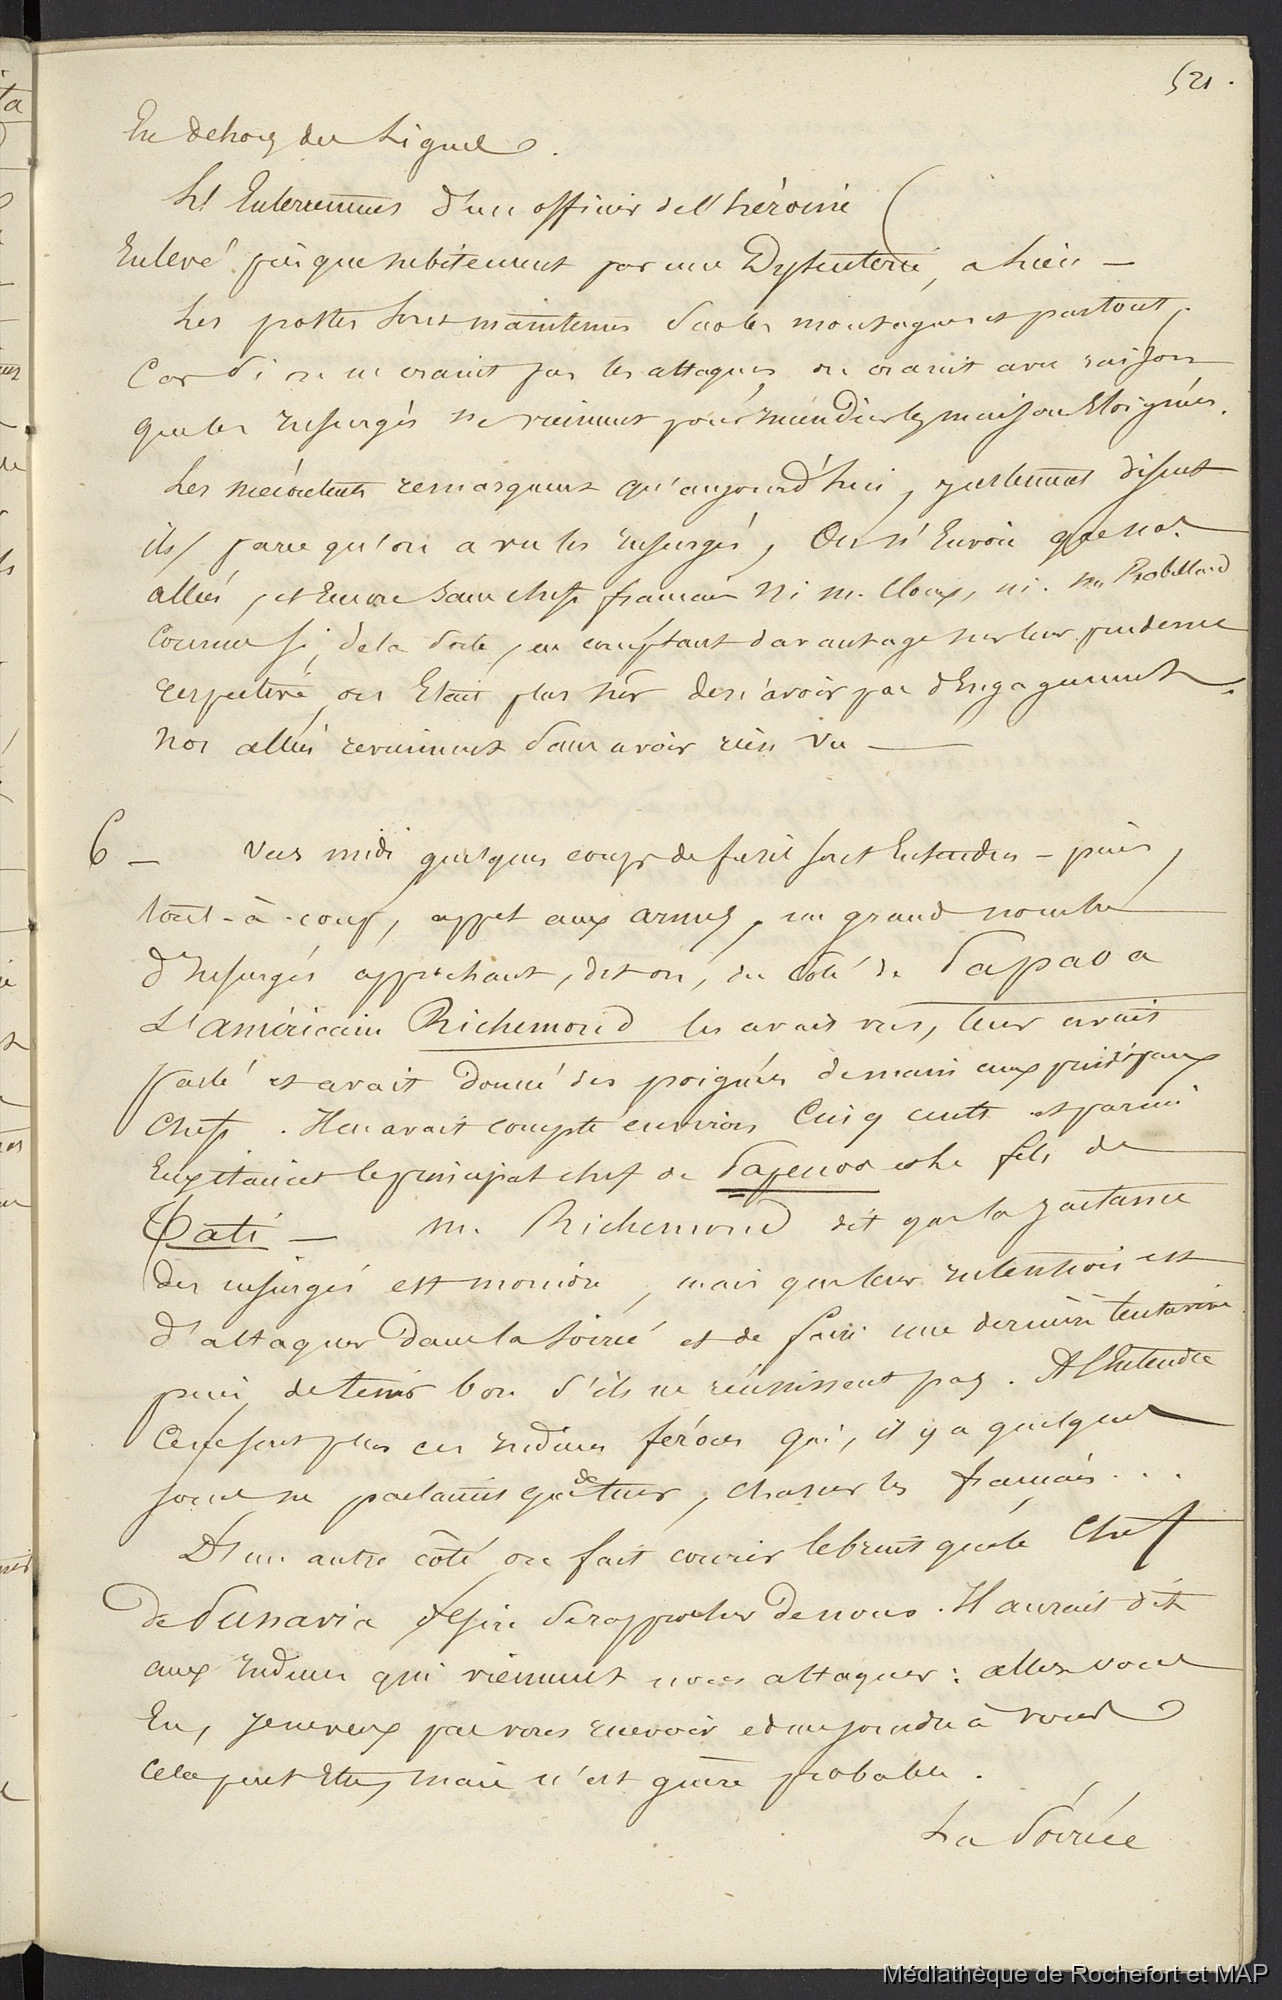 521.
En dehors des Lignes.
L'Enterrement d'un officier de l'héroïne
Enlevé presque subitement par une Dyssenterie, a lieu —
Les postes sont maintenus dans les montagnes et partout,
Car si on ne craint pas les attaques on craint avec raison
que les insurgés ne viennent pour incendier les maisons Eloignées.
Les mécontents remarquent qu'aujourd'hui, justement disent
ils, parce qu'on a vu les insurgés, On n'Envoie que nos
alliés, et Encore sans chefs français ni m. Cloux, ni m. Robillard
Comme si, de la sorte, en comptant davantage sur leur prudence
respective, on Etait plus sûr de n'avoir pas d'Engagement.
Nos alliés reviennent sans avoir rien vu —
6 — Vers midi quelques coups de fusil sont Entendus — puis,
tout-à-coup, appel aux armes, un grand nombre
d'Insurgés approchant, dit on, du côté de Papaoa
L'américain Richemond les avait vus, leur avait
parlé et avait donné des poignées de main aux principaux
Chefs. Il en avait compté environ Cinq cents et parmi
Eux étaient le principal chef de Papenoo et le fils de
Pati — M. Richemond dit que la jactance
des insurgés est moindre, mais que leur intention est
d'attaquer dans la soirée et de faire une dernière tentative
puis de tenir bon s'ils ne réussissent pas. A l'Entendre
Ce ne sont plus ces indiens féroces qui, il y a quelques
jours ne parlaient que de tuer, chasser les français...
D'un autre côté on fait courir le bruit que le Chef
de Punavia désire se rapprocher de nous. Il aurait dit
aux indiens qui viennent nous attaquer: allez vous
En, je ne veux pas vous recevoir et me joindre à vous
Cela peut Etre, mais n'est guère probable.
La Soirée
Médiathèque de Rochefort et MAP